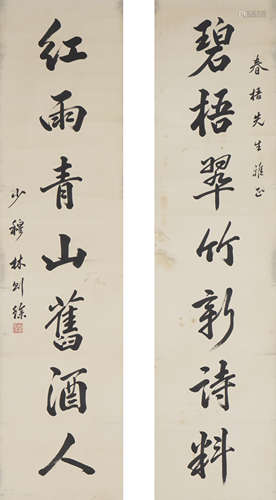 春梧先生雅正
碧梧翠竹新詩料
紅雨青山舊酒人
少穆林則徐